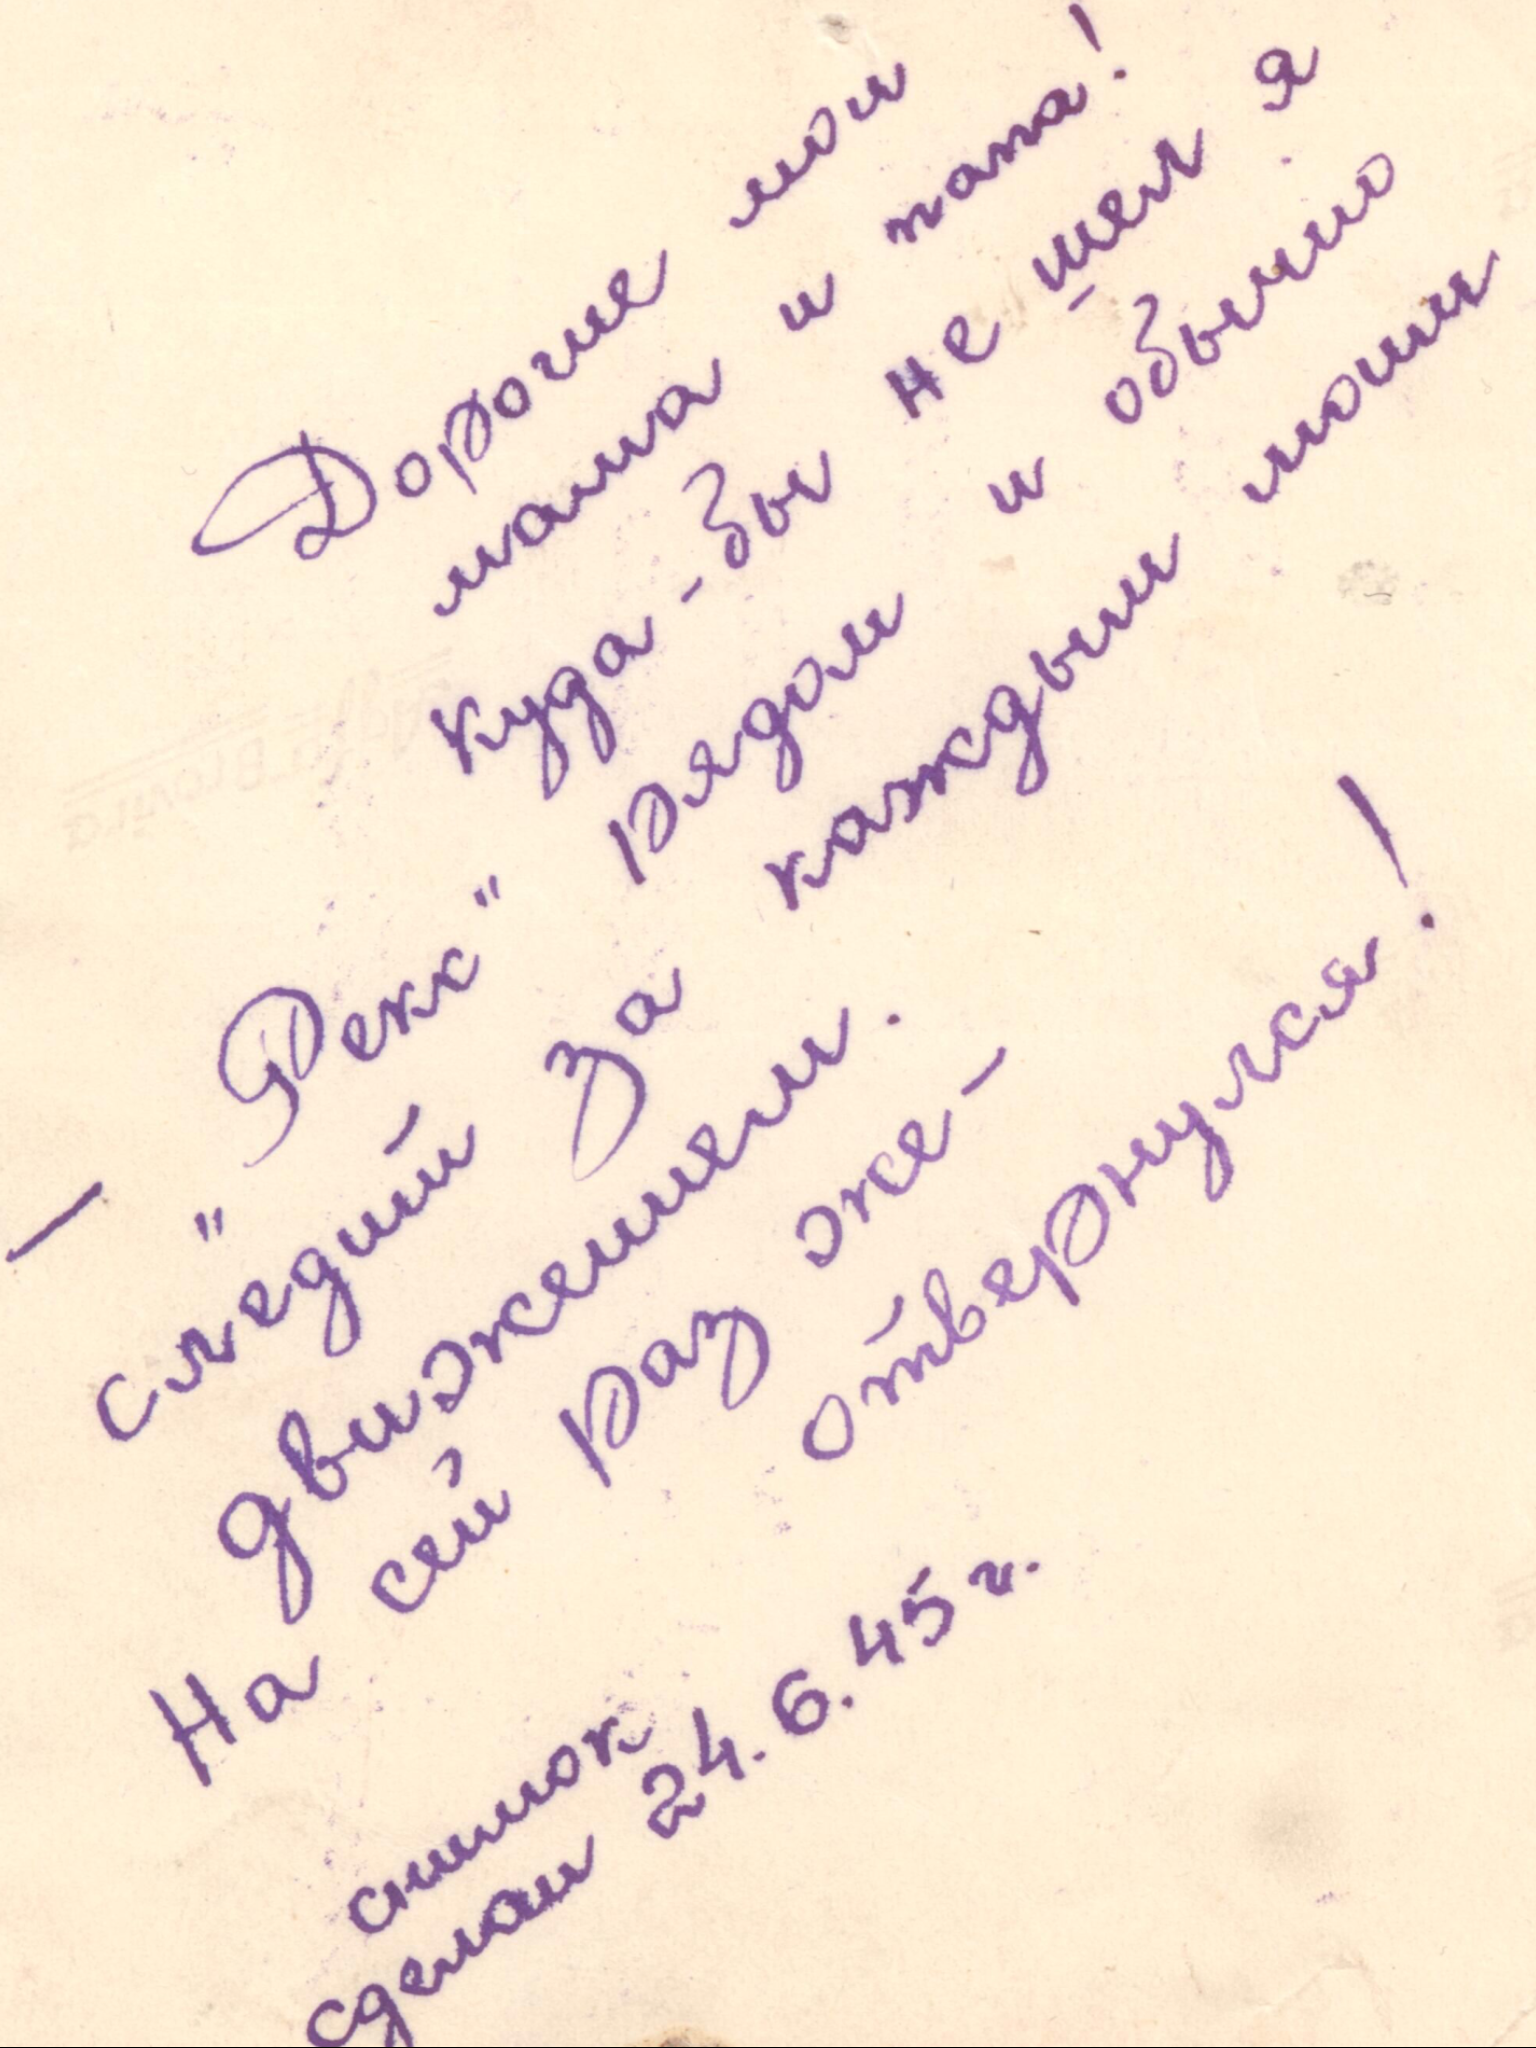 Дорогие мои
мама и папа!
Куда-бы не шел я
— "Рекс" рядом и обычно
следит за каждым моим
движением.
На сей раз же —
отвернулся!
снимок
сделан 24.6.45 г.